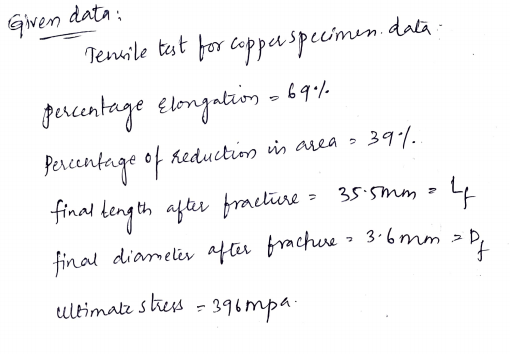 Given data:
Tensile test for copper specimen data.
percentage Elongation = 69%
Percentage of reduction in area = 39%.
final length after fracture = 35.5mm = Lf
final diameter after frachure = 3.6mm = Df
ultimate stress = 396mpa.